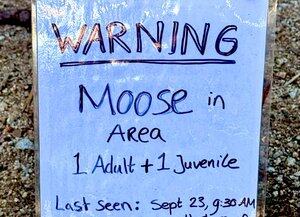 WARNING
Moose in
Area
1 Adult + 1 Juvenile
Last seen: Sept 23, 9:30 AM